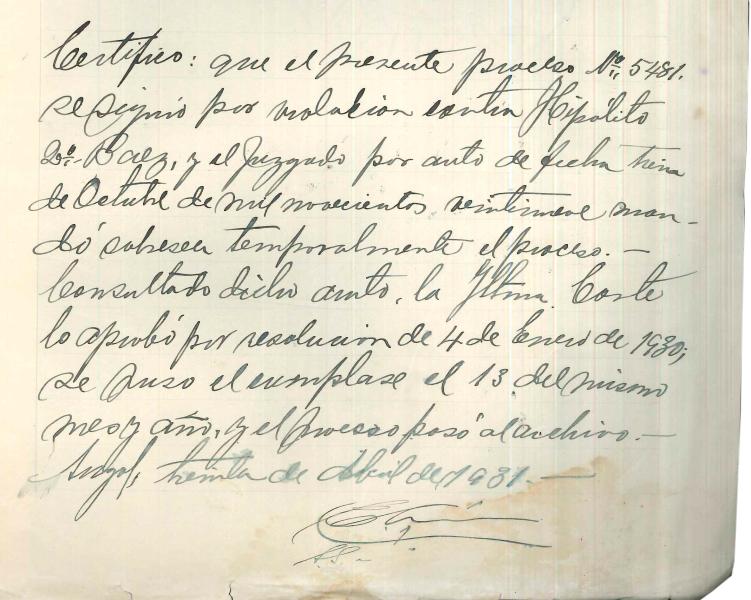 Certifico: que el presente proceso No. 5481.
se siguió por violacion contra Hipólito
2o.- Baez, y el Juzgado por auto de fecha
de Octubre de mil novecientos veintinueve man-
dó sobreseer temporalmente el proceso.-
Consultado dicho auto, la Iltma. Corte
lo aprobó por resolucion de 4 de Enero de 1930;
se puso el cumplase el 13 del mismo
mes y año, y el proceso pasó al archivo.-
Angol, treinta de Abril de 1931.-